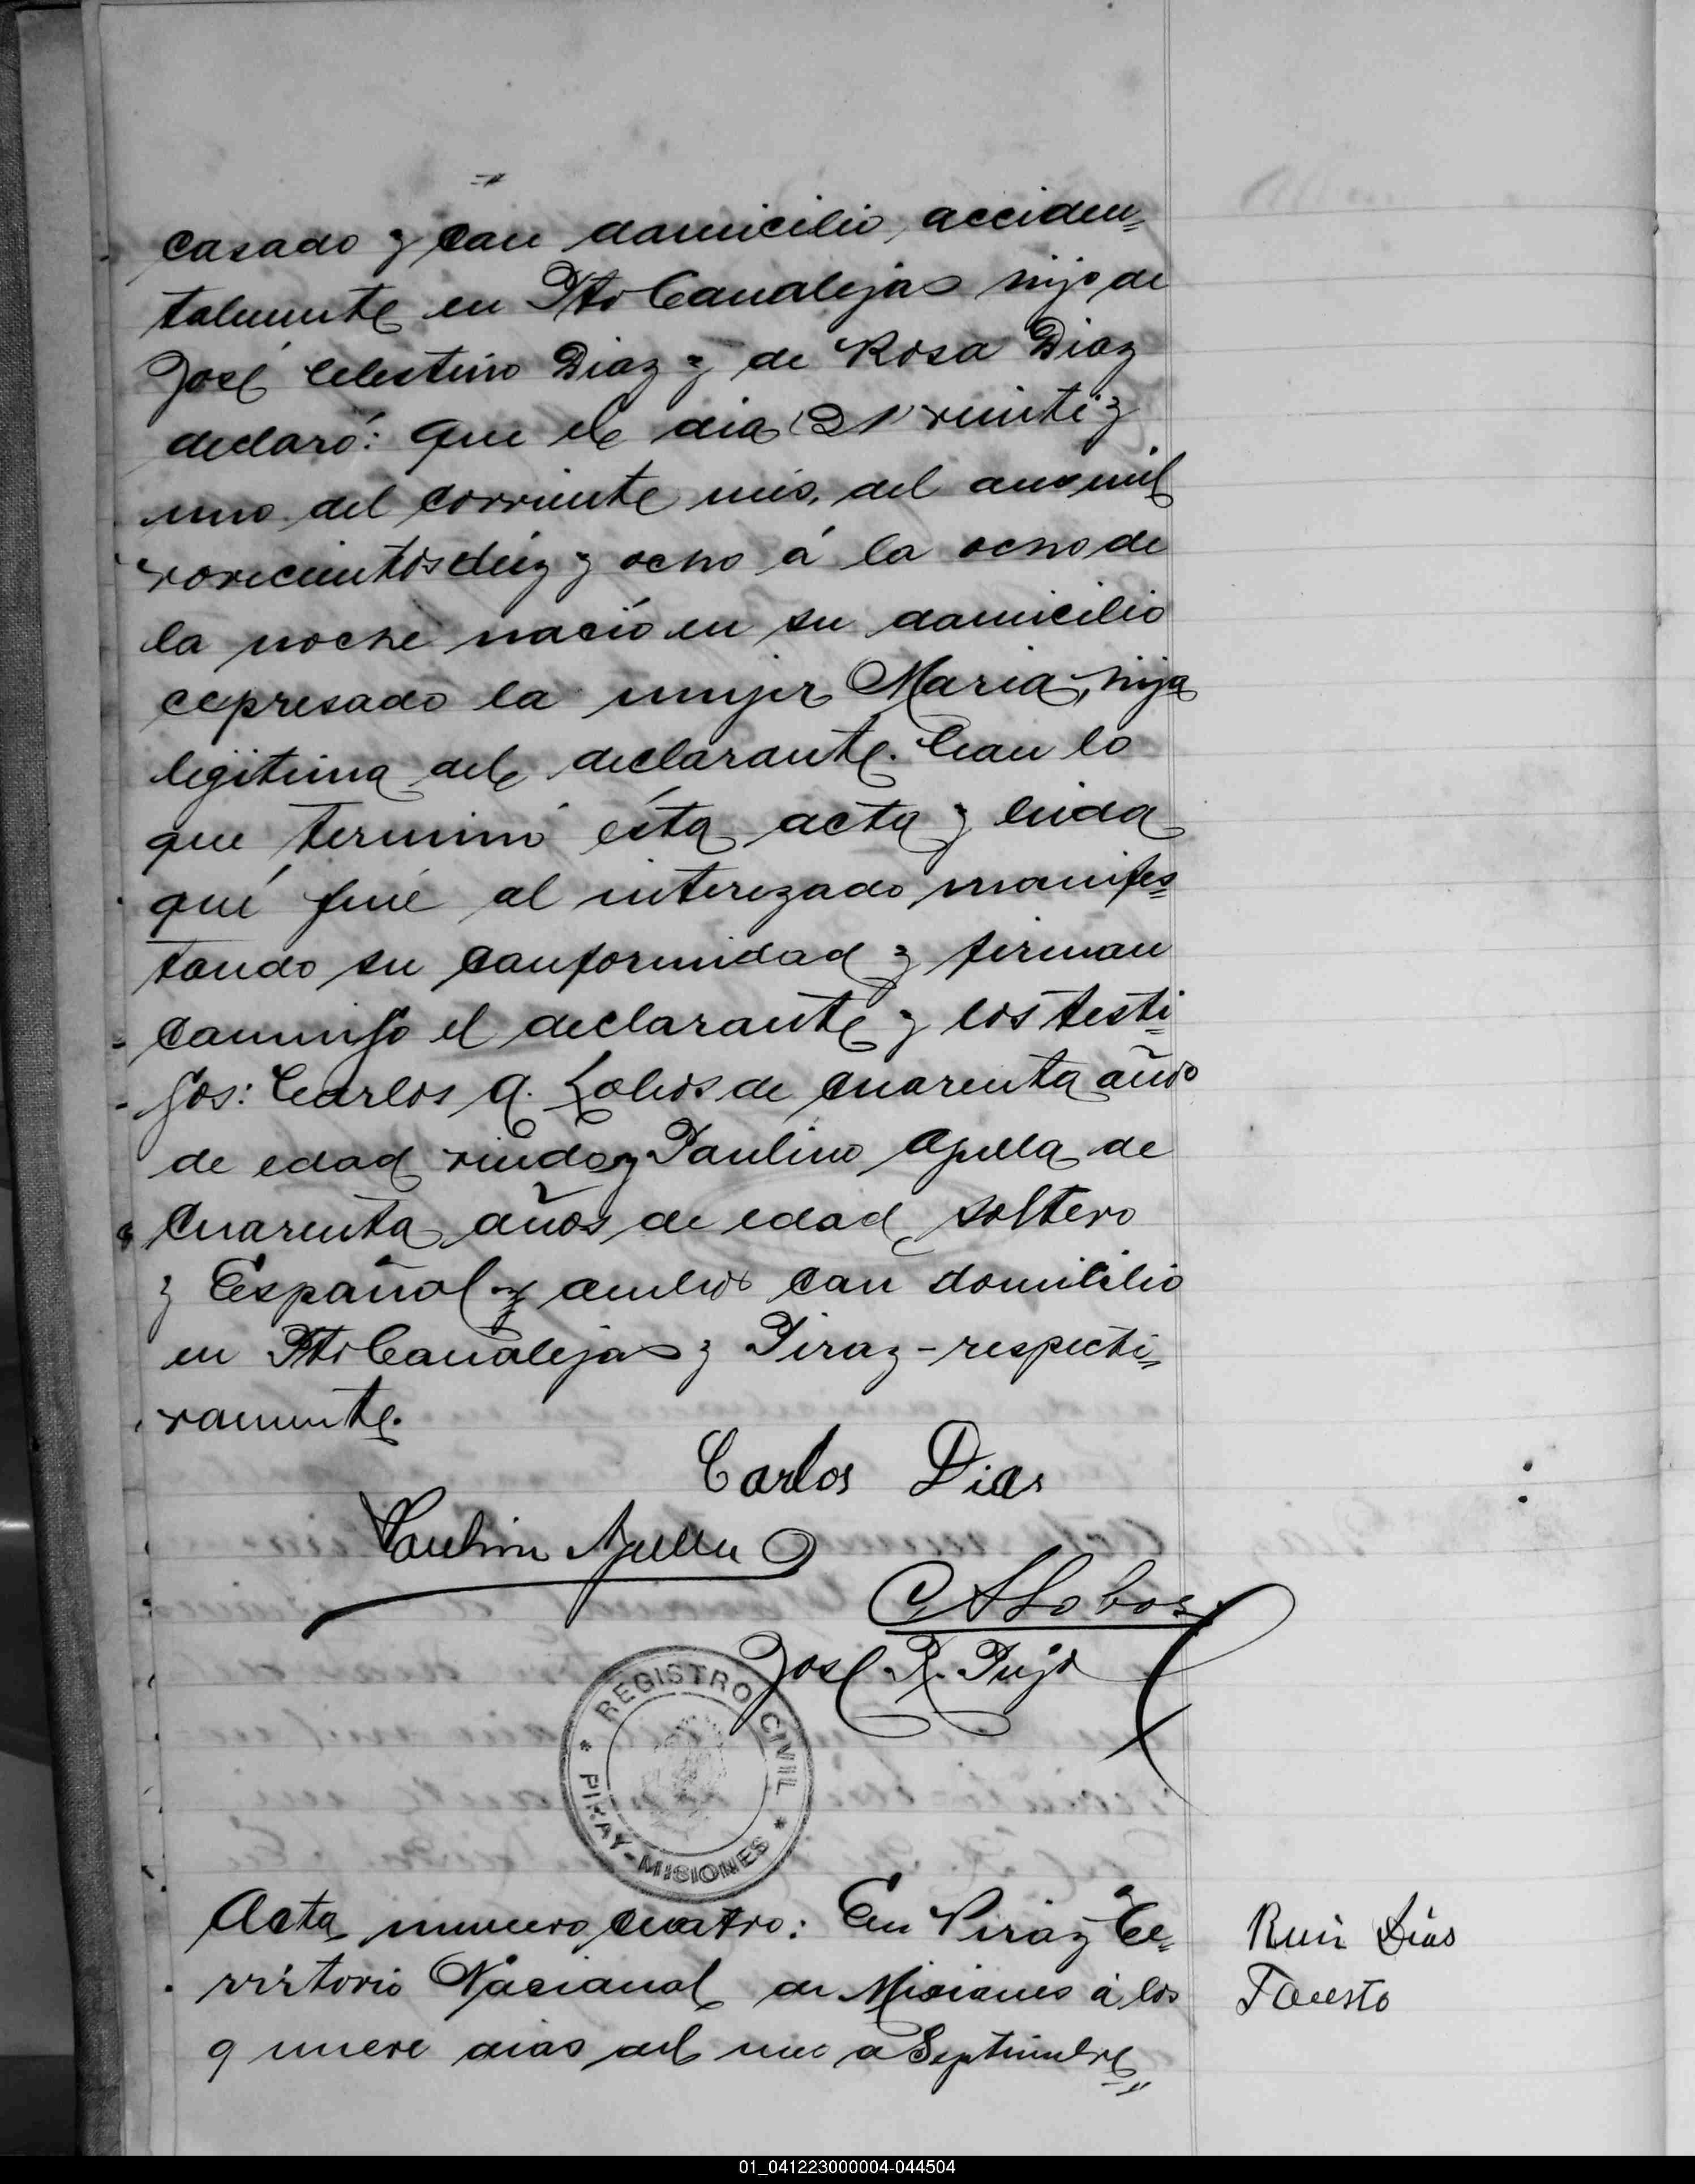 casado y con domicilio acciden=
talmente en Pto Canalejas hijo de
José Celestino Diaz y de Rosa Diaz
declaró: que el dia 21 veinte y
uno del corriente mes, del año mil
novecientos diez y ocho á la ocho de
la noche nació en su domicilio
expresado la mujer Maria, hija
legitima del declarante. Con lo
que terminó ésta acta y leida
qué fué al interezado manifes=
tando su conformidad y firman
conmigo el declarante y los testi=
gos: Carlos A. Lobos de cuarenta años
de edad viudo y Paulino Apella de
cuarenta años de edad, soltero
y Español y ambos con domicilio
en Pto Canalejas y Piray - respecti=
vamente.
Carlos Dias
Paulino Apella
C A Lobos
José R. Pujo
REGISTRO CIVIL
PIRAY - MISIONES
Acta número cuatro: En Piray Te=
rritorio Nacional de Misiones á los
9 nueve dias del mes de Septiembre
Ruiz Dias
Fausto
01_041223000004-044504